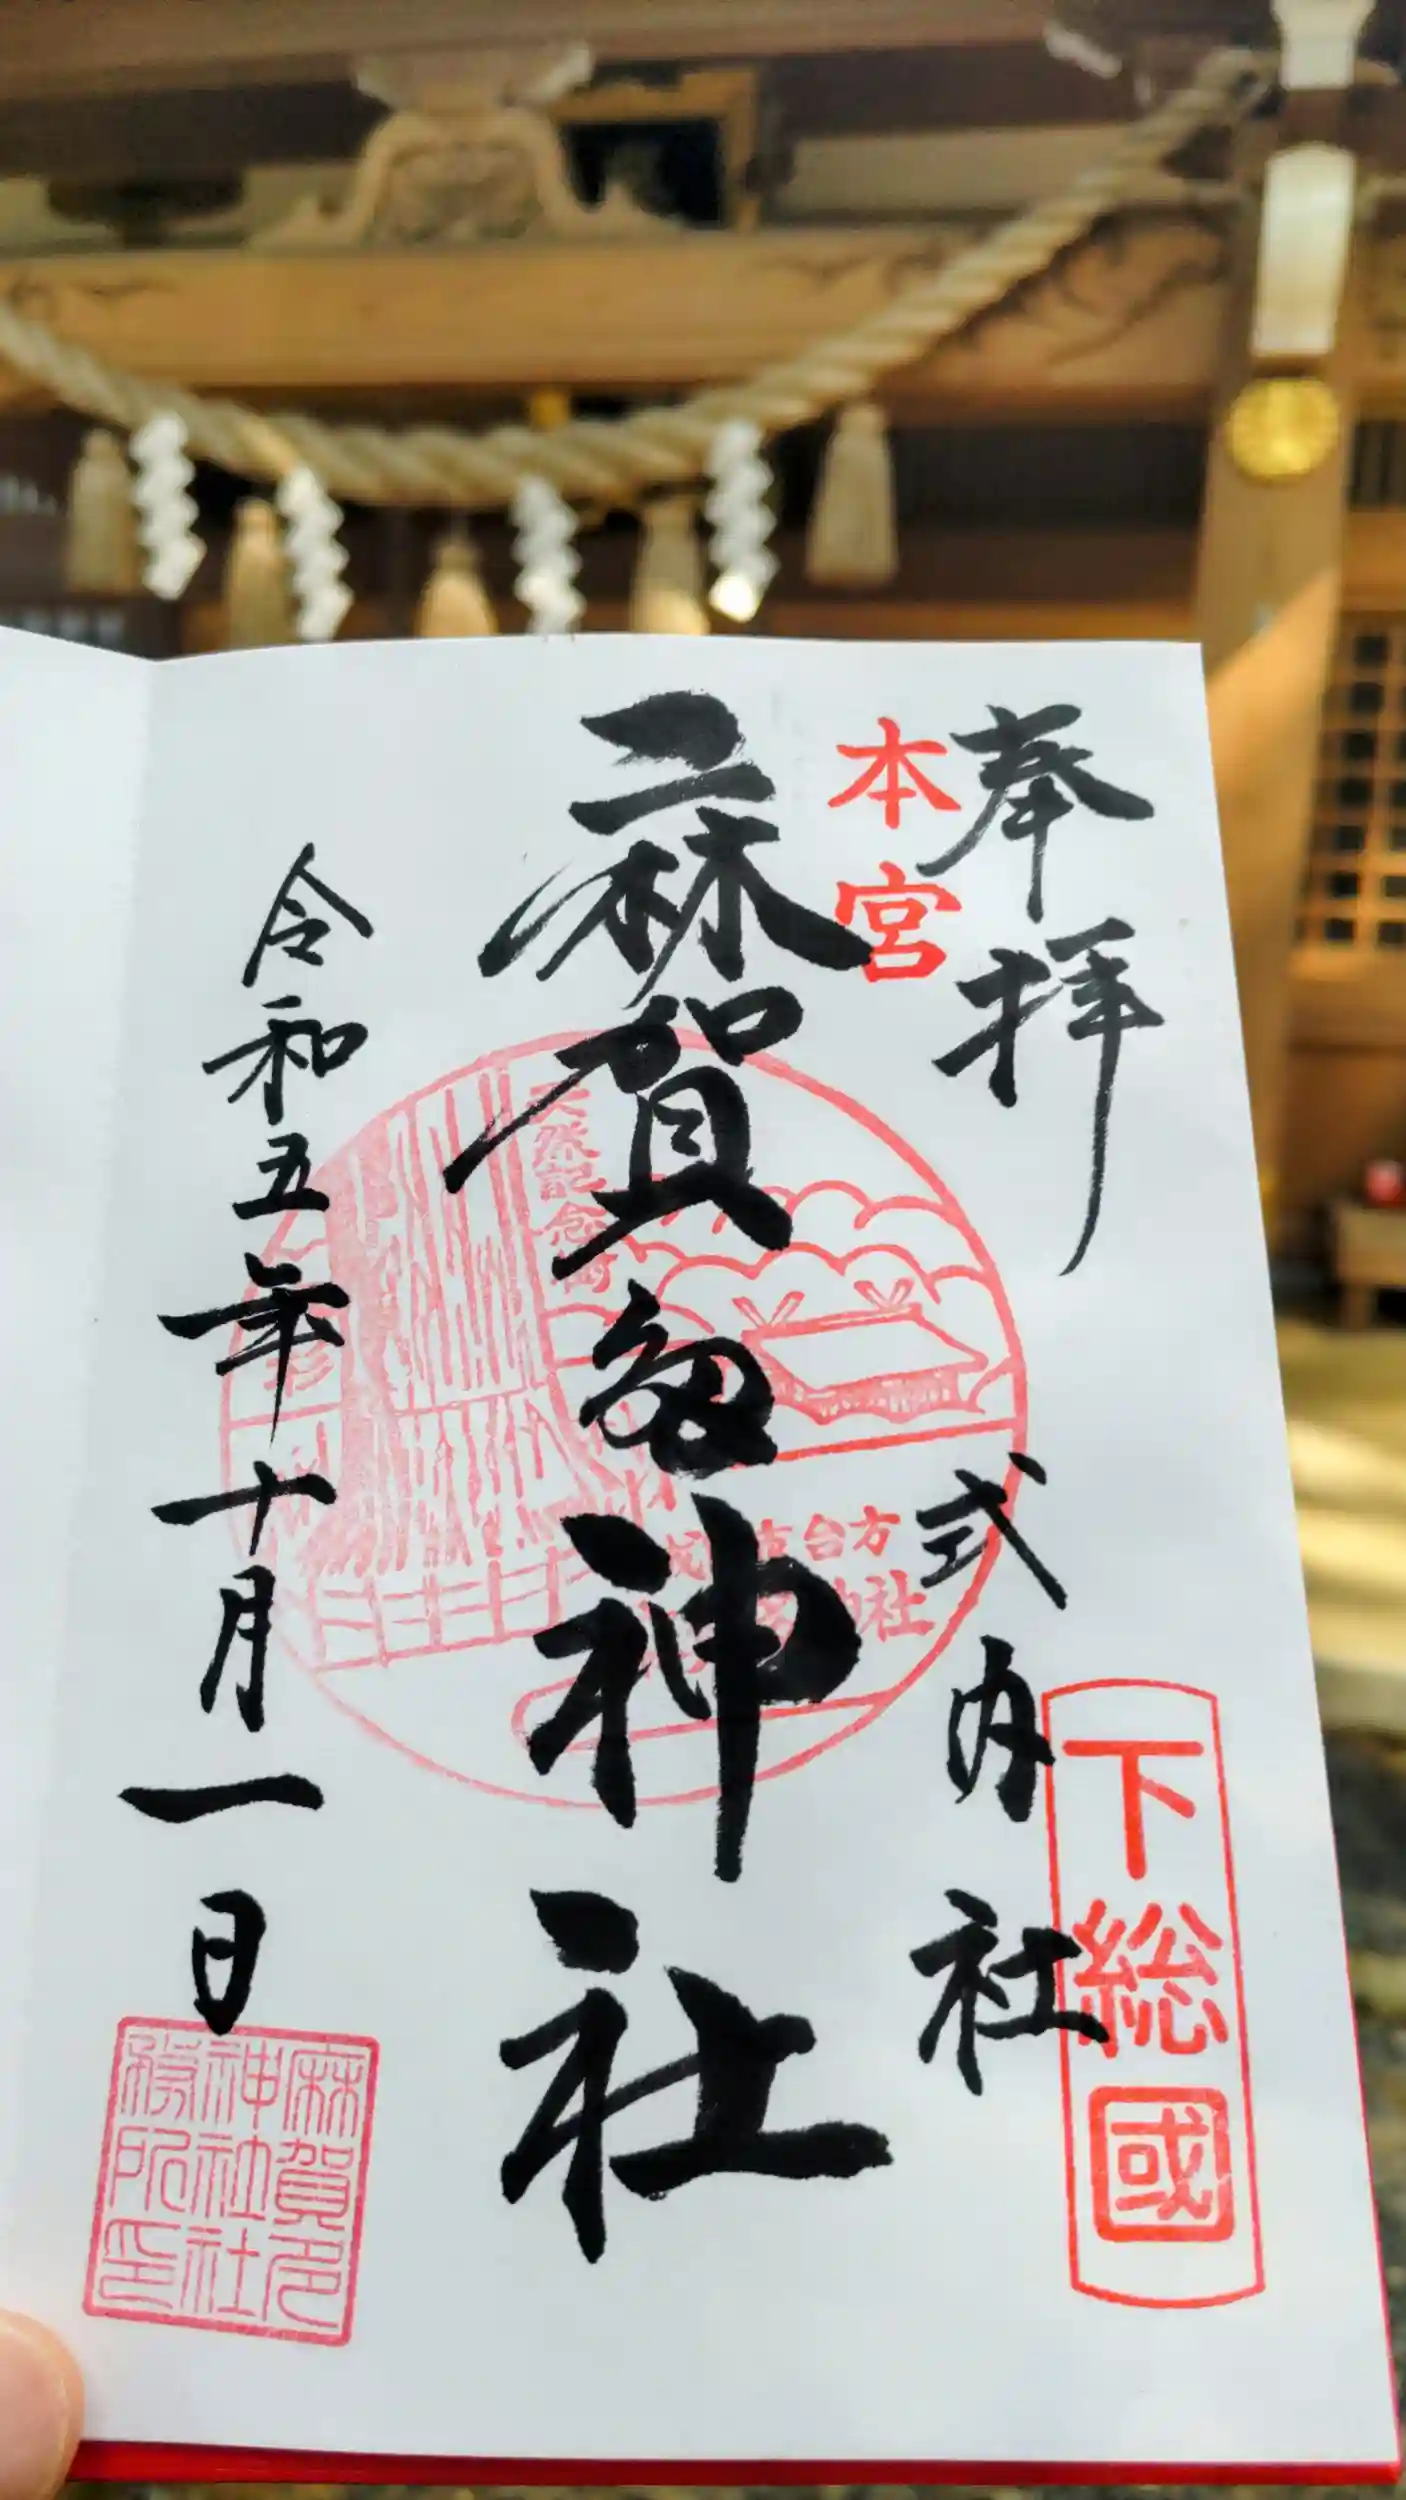 奉拝
本宮
式内社
下総國
麻賀多神社
天然記念物
台方
神社
令和五年十月一日
麻賀多
神社社
務所印